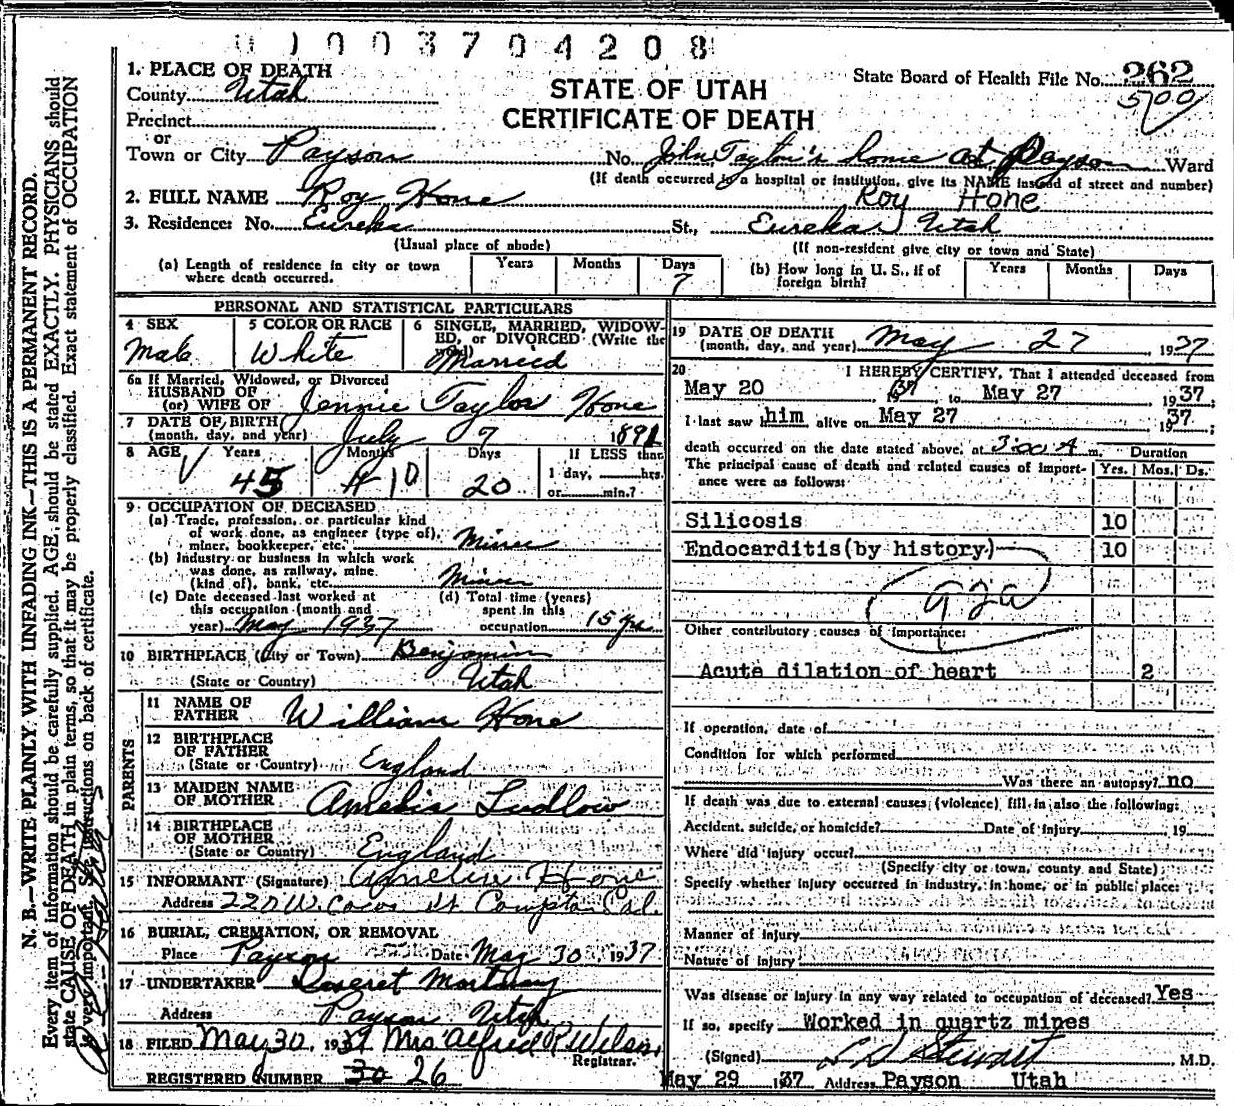 0 1 0 0 3 7 0 4 2 0 8
1. PLACE OF DEATH
County Utah
Precinct
or
Town or City Payson
STATE OF UTAH
CERTIFICATE OF DEATH
State Board of Health File No. 262
500
No. John Taylor's home at Payson Ward
(If death occurred in a hospital or institution, give its NAME instead of street and number)
2. FULL NAME Roy Hone Roy Hone
3. Residence: No. Eureka St., Eureka Utah
(Usual place of abode) (If non-resident give city or town and State)
(a) Length of residence in city or town where death occurred. Years Months Days 7
(b) How long in U. S., if of foreign birth? Years Months Days
PERSONAL AND STATISTICAL PARTICULARS
4 SEX Male
5 COLOR OR RACE White
6 SINGLE, MARRIED, WIDOWED, or DIVORCED (Write the word) Married
6a If Married, Widowed, or Divorced
HUSBAND OF
(or) WIFE OF Jennie Taylor Hone
7 DATE OF BIRTH
(month, day, and year) July 7 1891
8 AGE Years 45 Months 10 Days 20 If LESS than 1 day, hrs. or min.?
9 OCCUPATION OF DECEASED
(a) Trade, profession, or particular kind
of work done, as engineer (type of),
miner, bookkeeper, etc. Miner
(b) Industry or business in which work
was done, as railway, mine
(kind of), bank, etc. Miner
(c) Date deceased last worked at
this occupation (month and
year) May 1937
(d) Total time (years)
spent in this
occupation 15 yrs
10 BIRTHPLACE (City or Town) Benjamin
(State or Country) Utah
PARENTS
11 NAME OF
FATHER William Hone
12 BIRTHPLACE
OF FATHER
(State or Country) England
13 MAIDEN NAME
OF MOTHER Amelia Ludlow
14 BIRTHPLACE
OF MOTHER
(State or Country) England
15 INFORMANT (Signature) Hone
Address W. Cocos St Compton Cal.
16 BURIAL, CREMATION, OR REMOVAL
Place Payson Date May 30, 1937
17 UNDERTAKER Deseret Mortuary
Address Payson Utah
18 FILED May 30, 1937 Mrs Alfred R Wilson
Registrar.
REGISTERED NUMBER 30 26
19 DATE OF DEATH
(month, day, and year) May 27, 1937
20 I HEREBY CERTIFY, That I attended deceased from
May 20 1937 to May 27 1937;
I last saw him alive on May 27 1937;
death occurred on the date stated above, at 3:00 A m.
The principal cause of death and related causes of importance were as follows:
Duration
Yrs. Mos. Ds.
Silicosis 10
Endocarditis (by history) 10
92a
Other contributory causes of importance:
Acute dilation of heart 2
If operation, date of
Condition for which performed
Was there an autopsy? no
If death was due to external causes (violence) fill in also the following:
Accident, suicide, or homicide? Date of injury 19
Where did injury occur?
(Specify city or town, county and State)
Specify whether injury occurred in industry, in home, or in public place:
Manner of injury
Nature of injury
Was disease or injury in any way related to occupation of deceased? Yes
If so, specify Worked in quartz mines
(Signed) L D Stewart M.D.
May 29 1937 Address Payson Utah
N. B.—WRITE PLAINLY, WITH UNFADING INK—THIS IS A PERMANENT RECORD.
Every item of information should be carefully supplied. AGE should be stated EXACTLY. PHYSICIANS should
state CAUSE OF DEATH in plain terms, so that it may be properly classified. Exact statement of OCCUPATION
is very important. See instructions on back of certificate.